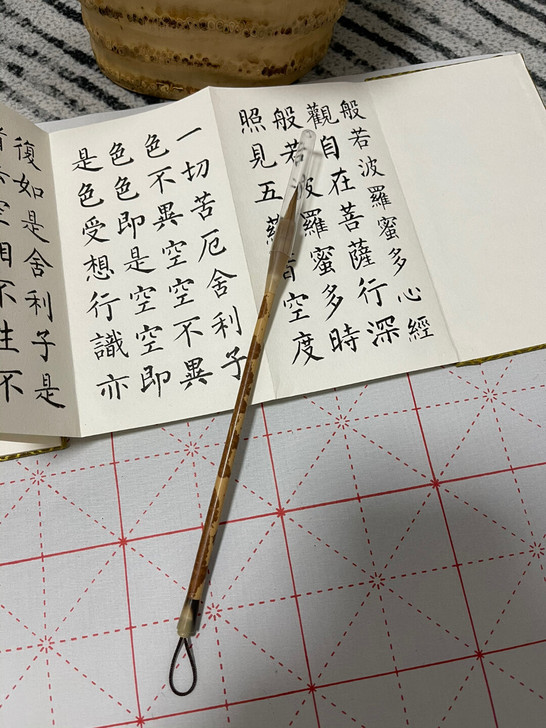 般若波羅蜜多心經
觀自在菩薩行深
般若波羅蜜多時
照見五空度
一切苦厄舍利子
色不異空空不異
色色即是空空即
是色受想行識亦
復如是舍利子是
空相不生不